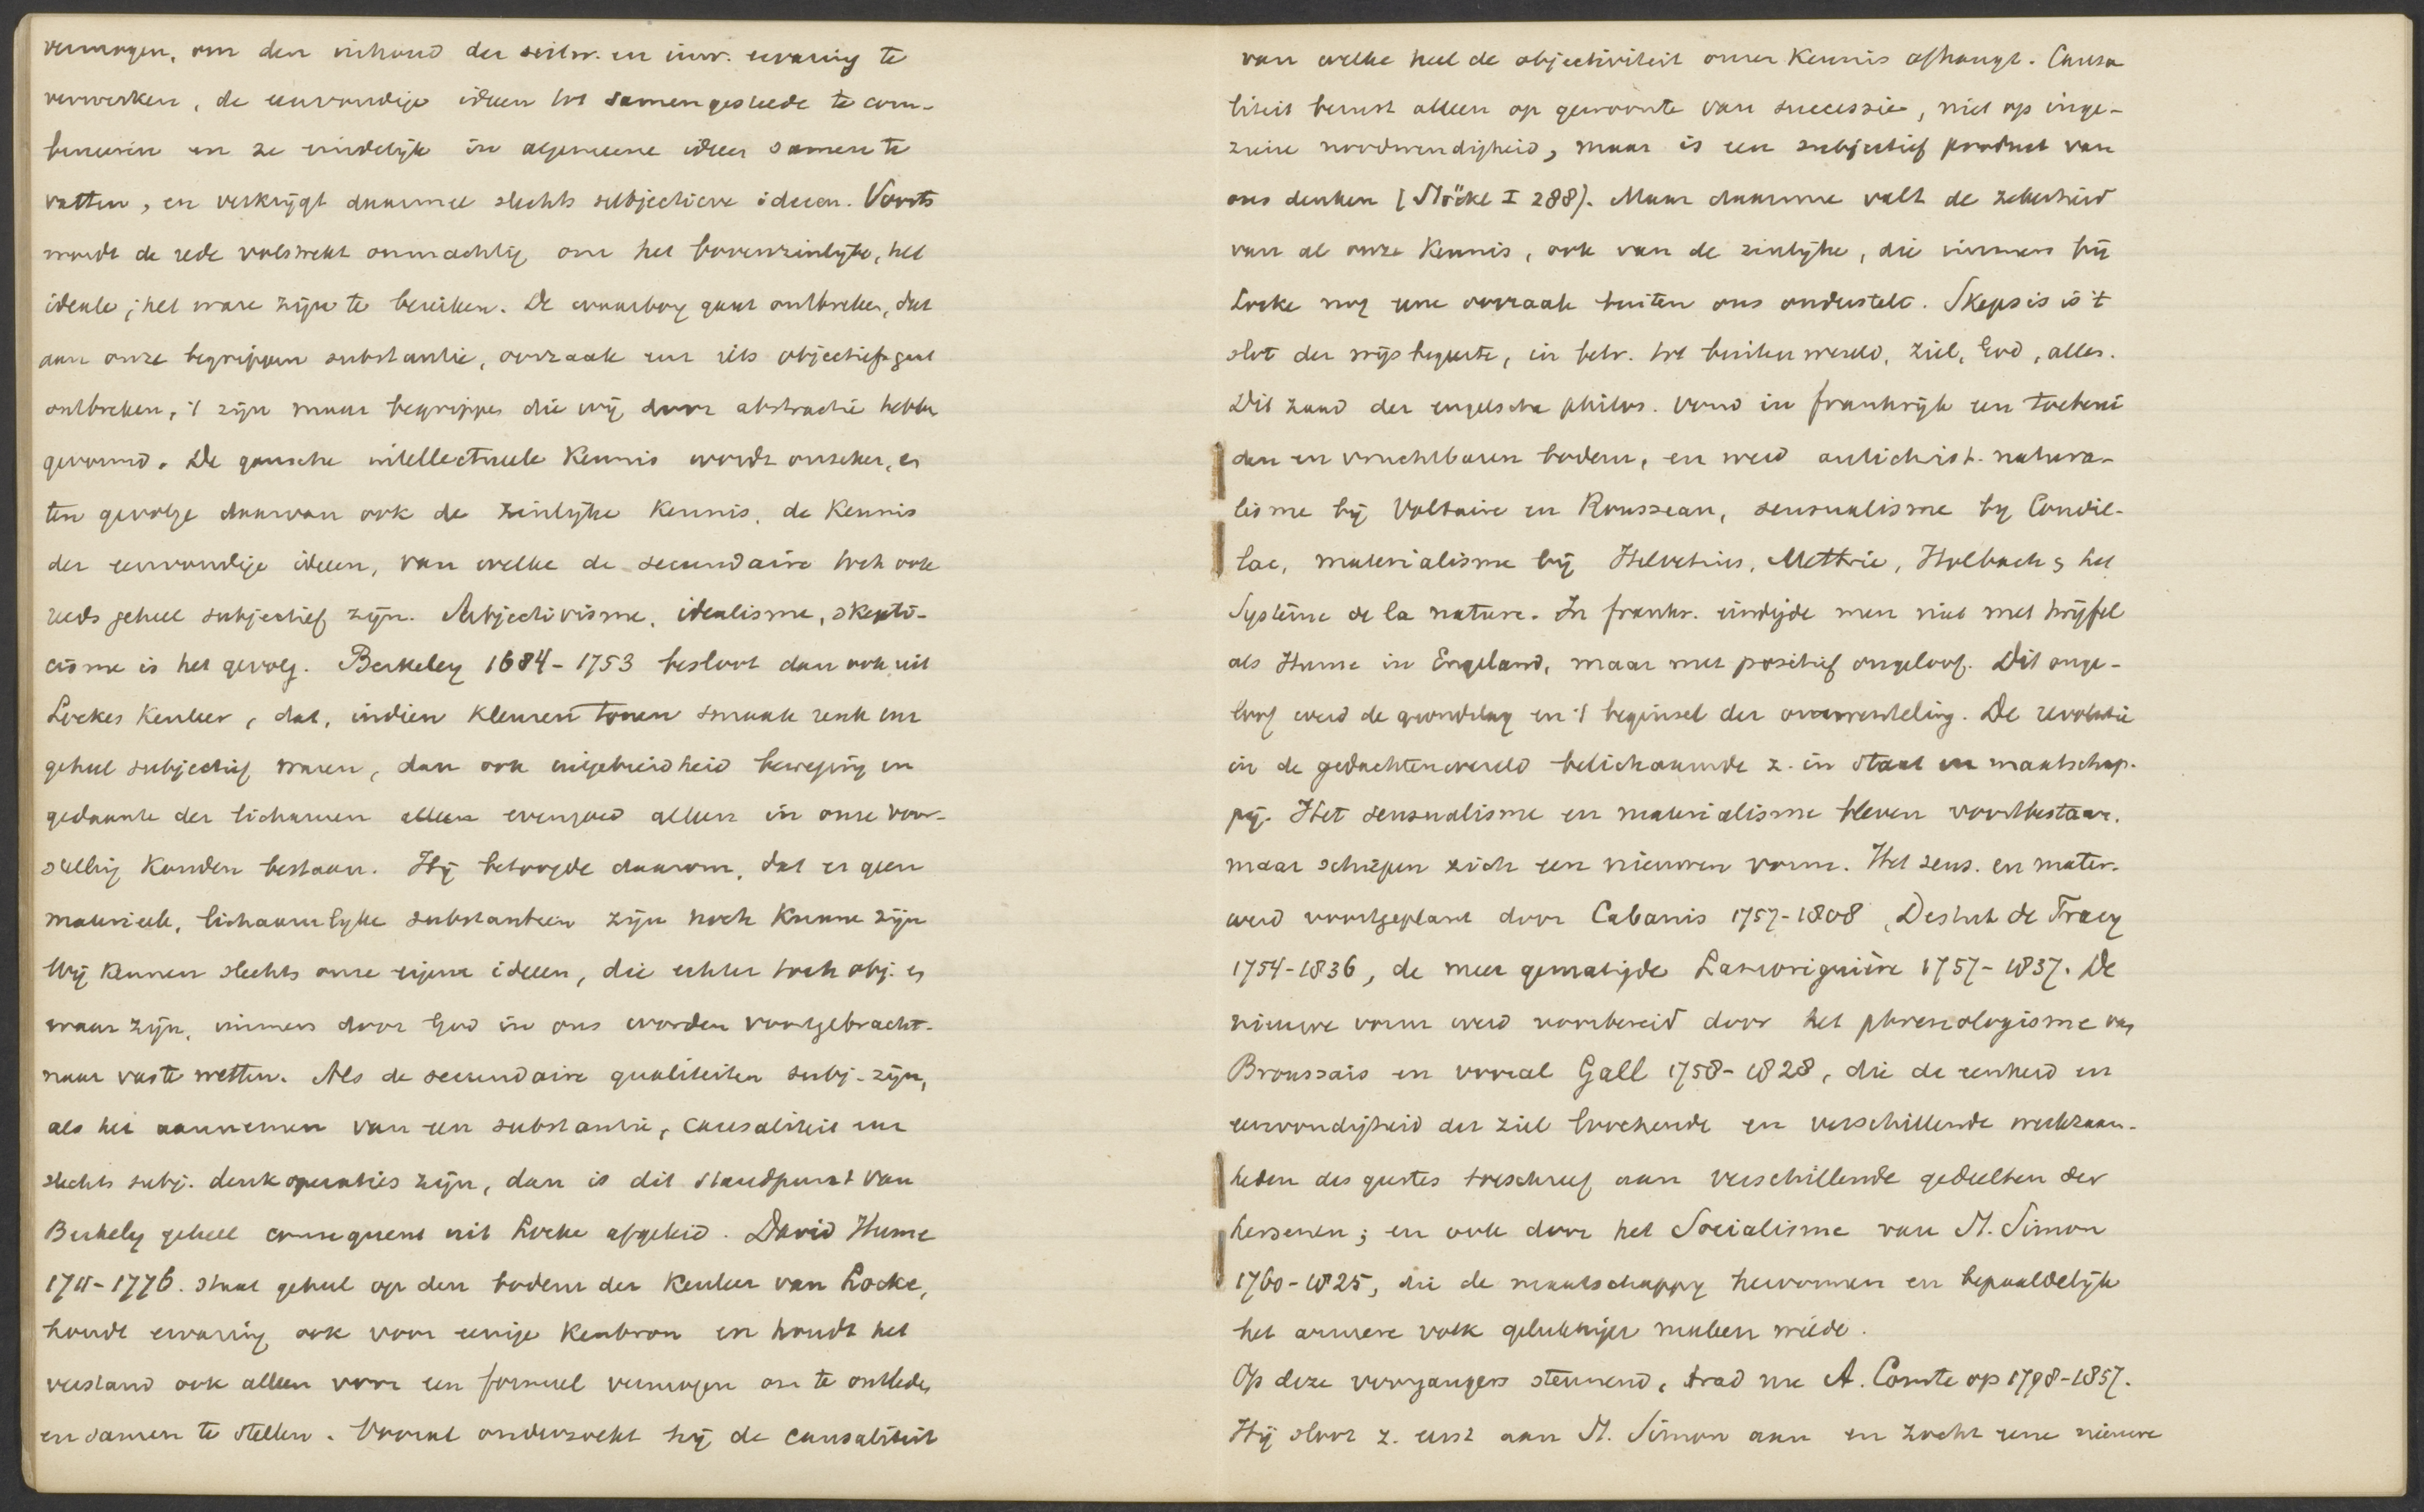 vermogen, om den inhoud der uitw. en inw. ervaring te
verwerken, de eenvoudige ideen tot samengestelde te com-
bineeren en ze eindelijk in algemeene ideen samen te
vatten, en verkrijgt daarmee slechts subjectieve ideeen. Voorts
wordt de rede volstrekt onmachtig om het bovenzinlijke, het
ideale, het ware zijn te bereiken. De waarborg gaat ontbreken, dat
aan onze begrippen substantie, oorzaak enz iets objectiefs gaat
ontbreken, 't zijn maar begrippen die wij door abstractie hebben
gevormd. De gansche intellectueele Kennis wordt onzeker, en
ten gevolge daarvan ook de zinlijke Kennis, de Kennis
der eenvoudige ideen, van welke de secundaire toch ook
reeds geheel subjectief zijn. Subjectivisme, idealisme, skepti-
cisme is het gevolg. Berkeley 1684-1753 besloot dan ook uit
Lockes Kenleer, dat, indien Kleuren tonen smaak reuk enz
geheel subjectief waren, dan ook uitgebreidheid beweging en
gedaante der lichamen alleen evengoed alleen in onze voor-
stelling Konden bestaan. Hij betoogde daarom, dat er geen
materieele, lichaamlyke substantieen zijn noch Kunnen zijn
Wij Kennen slechts onze eigene ideen, die echter toch obj. en
waar zijn, immers door God in ons worden voortgebracht
naar vaste wetten. Als de secundaire qualiteiten subj. zijn,
als het aannemen van een substantie, causaliteit enz
slechts subj. denkoperaties zijn, dan is dit standpunt van
Berkely geheel consequent uit Locke afgeleid. David Hume
1711-1776. staat geheel op den bodem der Kenleer van Locke,
houdt ervaring ook voor eenige Kenbron en houdt het
verstand ook alleen voor een formeel vermogen om te ontleden
en samen te stellen. Vooral onderzoekt hij de causaliteit
van welke heel de objectiviteit onzer Kennis afhangt. Causa
liteit berust alleen op gewoonte van successie, niet op inge-
ziene noodwendigheid, maar is een subjectief product van
ons denken (Stöckl I 288). Maar daarmee valt de zekerheid
van al onze Kennis, ook van de zinlijke, die immers bij
Locke nog eene oorzaak buiten ons onderstelt. Skepsis is 't
slot der wijsbegeerte, in betr. tot buitenwereld, ziel, God, alles.
Dit zaad der engelsche philos. vond in frankrijk een toeberei
den en vruchtbaren bodem, en werd antichrist. natura-
lisme bij Voltaire en Rousseau, sensualisme by Condil-
lac, materialisme bij Helvetius, Mettrie, Holbach & het
Système de la nature. In frankr. eindigde men niet met twijfel
als Hume in Engeland, maar met positief ongeloof. Dit onge-
loof werd de grondslag en 't beginsel der omwenteling. De revolutie
in de gedachtenwereld belichaamde z. in staat en maatschap-
pij. Het sensualisme en materialisme bleven voortbestaan,
maar schiepen zich een nieuwen vorm. Het sens. en mater.
werd voortgeplant door Cabanis 1757-1808, Destut de Tracy
1754-1836, de meer gematigde Laromiguière 1757-1837. De
nieuwe vorm werd voorbereid door het phrenologisme van
Broussais en vooral Gall 1758-1828, die de eenheid en
eenvoudigheid der ziel loochende en verschillende werkzaam-
heden des geestes toeschreef aan verschillende gedeelten der
hersenen; en ook door het Socialisme van St. Simon
1760-1825, die de maatschappy hervormen en bepaaldelijk
het armere volk gelukkiger maken wilde.
Op deze voorgangers steunend, trad nu A. Comte op 1798-1857.
Hij sloot z. eerst aan St. Simon aan en zocht eene nieuwe